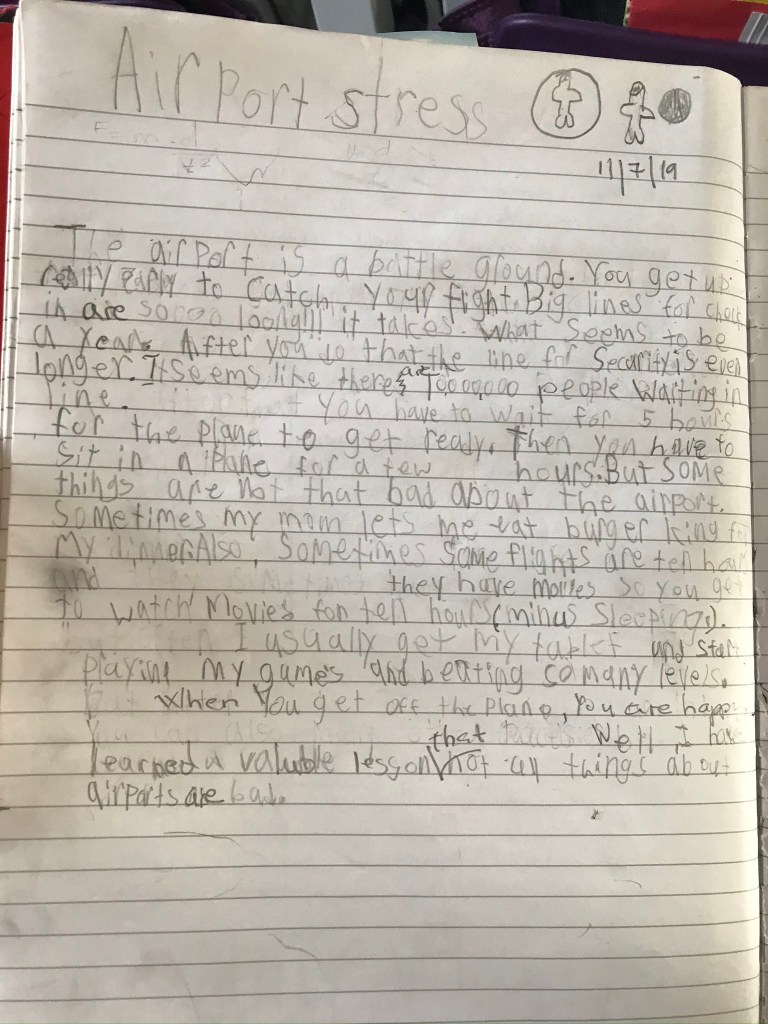 Airport stress
11/7/19
The airport is a battle ground. You get up
really early to catch your fight. Big lines for check
in are soooo loong!!! it takes. What seems to be
a year. After you do that the line for Security is even
longer. It seems like there are 10000,000 people waiting in
line. you have to wait for 5 hours
for the plane to get ready. Then you have to
sit in a plane for a few hours. But some
things are not that bad about the airport.
Sometimes my mom lets me eat burger king for
My dinner. Also, Sometimes some flights are ten hour
and they have movies so you get
to watch Movies for ten hours (minus sleeping).
I usually get my tablet and start
playing my games and beating so many levels.
When you get off the plane, you are happy
Well I have
learned a valuble lesson that not all things about
airports are bad.